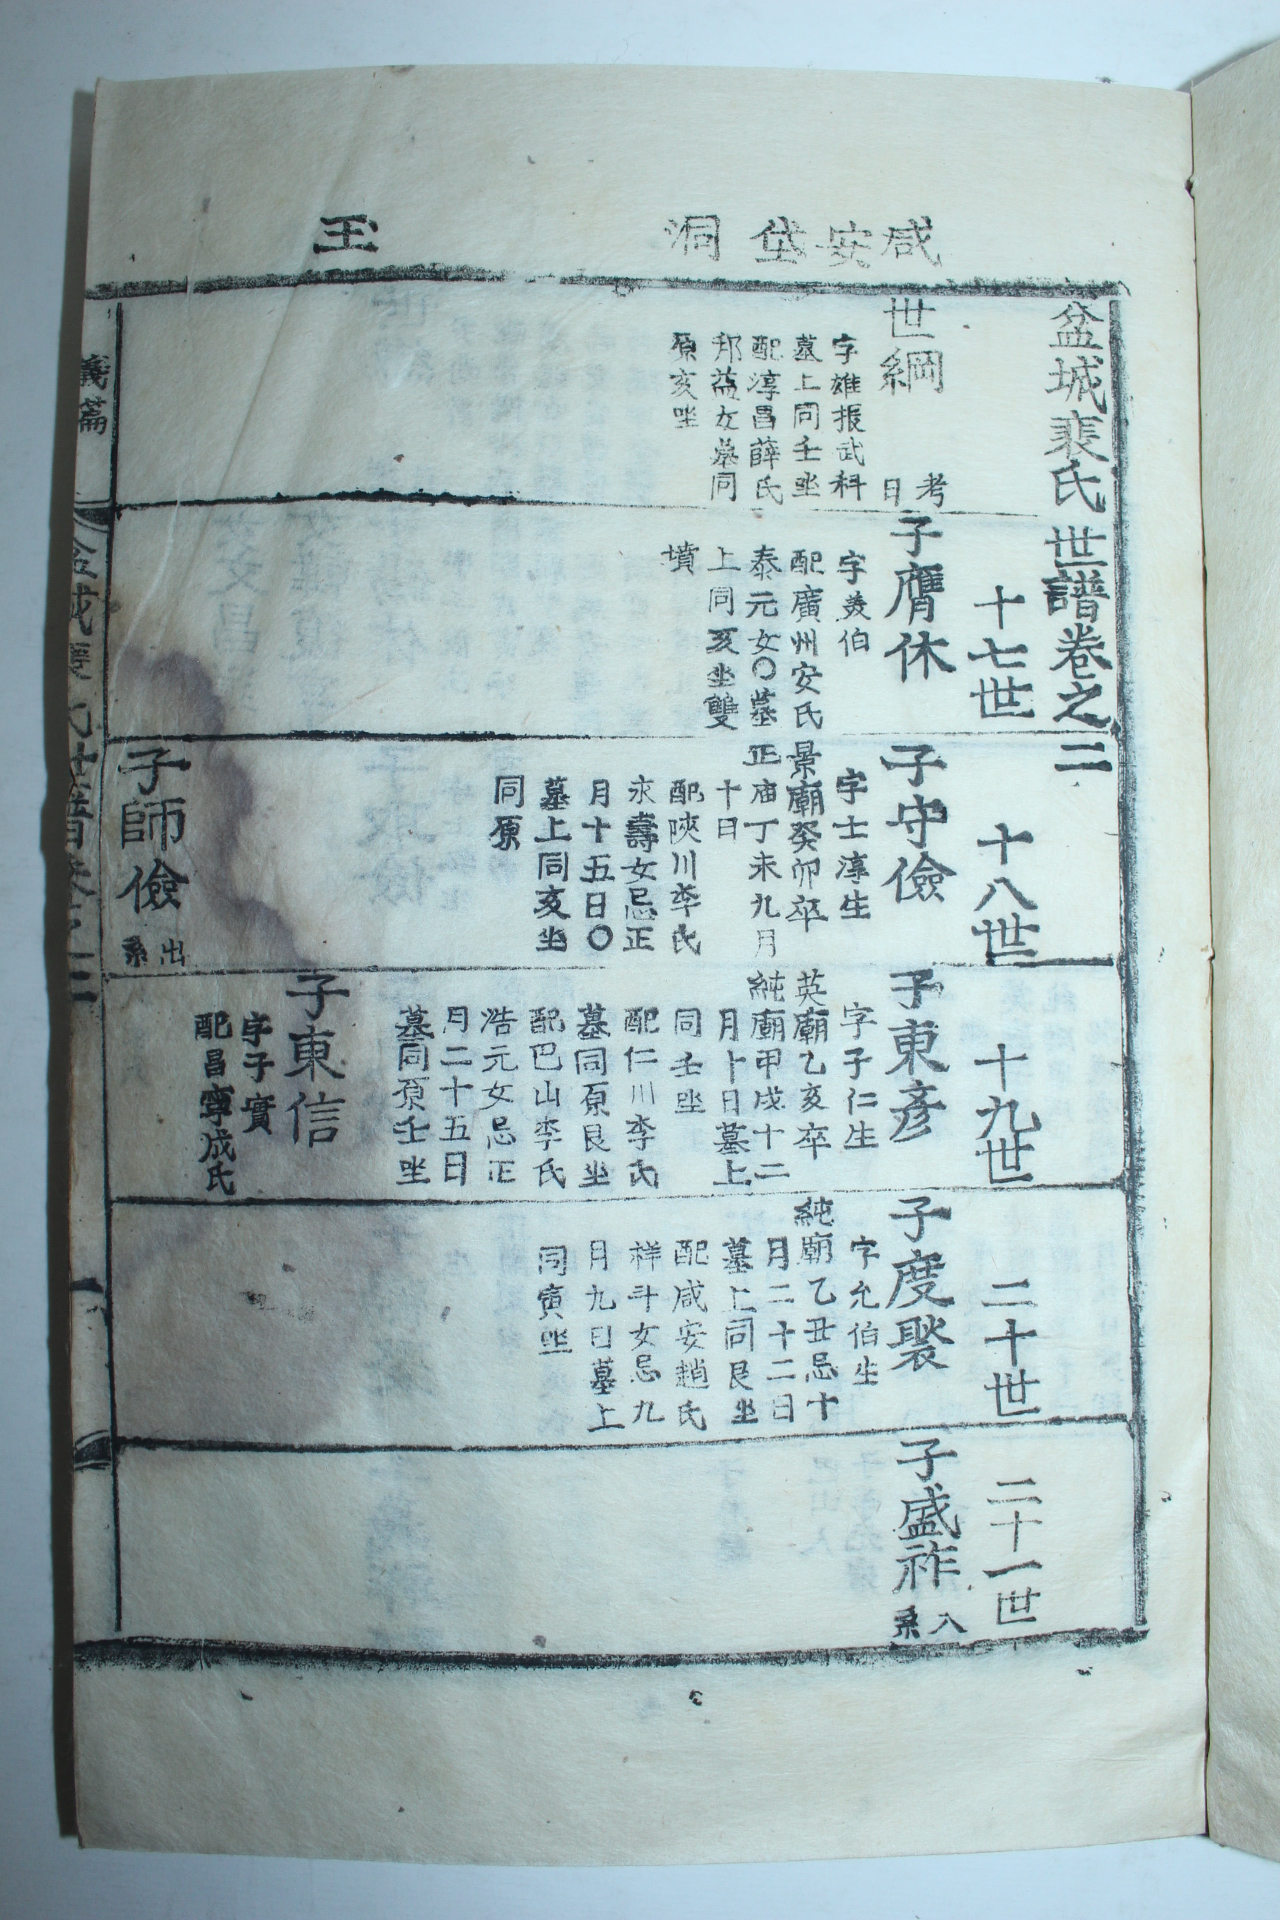 咸安垈洞
玉
盆城裴氏世譜卷之二
十七世
十八世
十九世
二十世
二十一世
世綱
考曰
字雄振武科
墓上同壬坐
配淳昌薛氏
邦益女墓同
原亥坐
子膺休
字美伯
配廣州安氏
泰元女○墓
上同亥坐雙
墳
子守儉
字士淳生
景廟癸卯卒
正庙丁未九月
十日
配陜川李氏
永壽女忌正
月十五日○
墓上同亥坐
同原
子師儉
出系
子東彦
字子仁生
英廟乙亥卒
純廟甲戌十二
月卜日墓上
同壬坐
配仁川李氏
墓同原艮坐
配巴山李氏
浩元女忌正
月二十五日
墓同原壬坐
子東信
字子實
配昌寧成氏
子度褧
字允伯生
純廟乙丑忌十
月二十二日
墓上同艮坐
配咸安趙氏
祥斗女忌九
月九日墓上
同寅坐
子盛祚
入系
義篇
盆城裴氏世譜卷之二